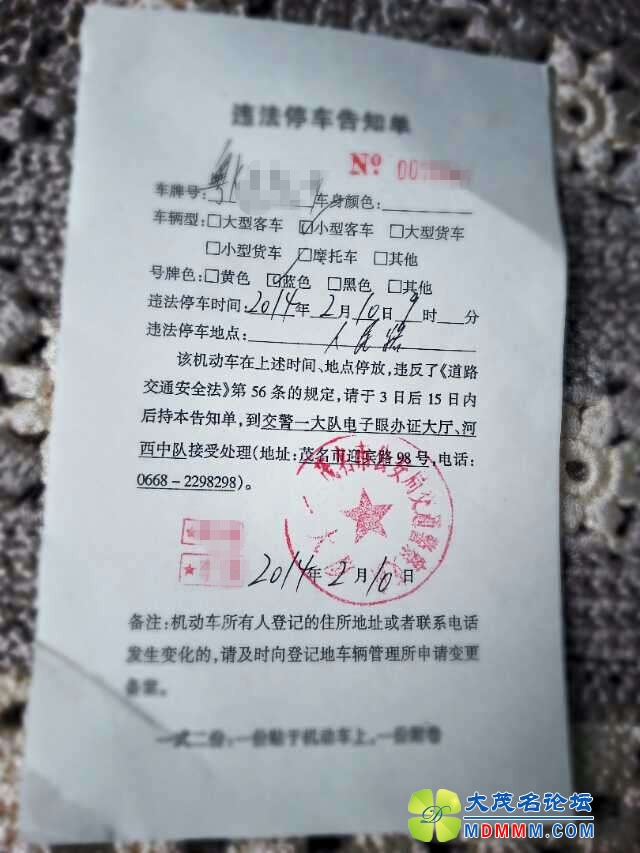 违法停车告知单
No 00
车牌号:粤 车身颜色:
车辆型:□大型客车 ☑小型客车 □大型货车
□小型货车 □摩托车 □其他
号牌色:□黄色 ☑蓝色 □黑色 □其他
违法停车时间:2014年2月10日9时 分
违法停车地点: 人民路
该机动车在上述时间、地点停放,违反了《道路
交通安全法》第56条的规定,请于3日后15日内
后持本告知单,到交警一大队电子眼办证大厅、河
西中队接受处理(地址:茂名市迎宾路98号,电话:
0668-2298298)。
茂名市公安局交通警察
2014年2月10日
备注:机动车所有人登记的住所地址或者联系电话
发生变化的,请及时向登记地车辆管理所申请变更
备案。
一式二份:一份粘于机动车上,一份附卷
大茂名论坛
MDMMM.COM